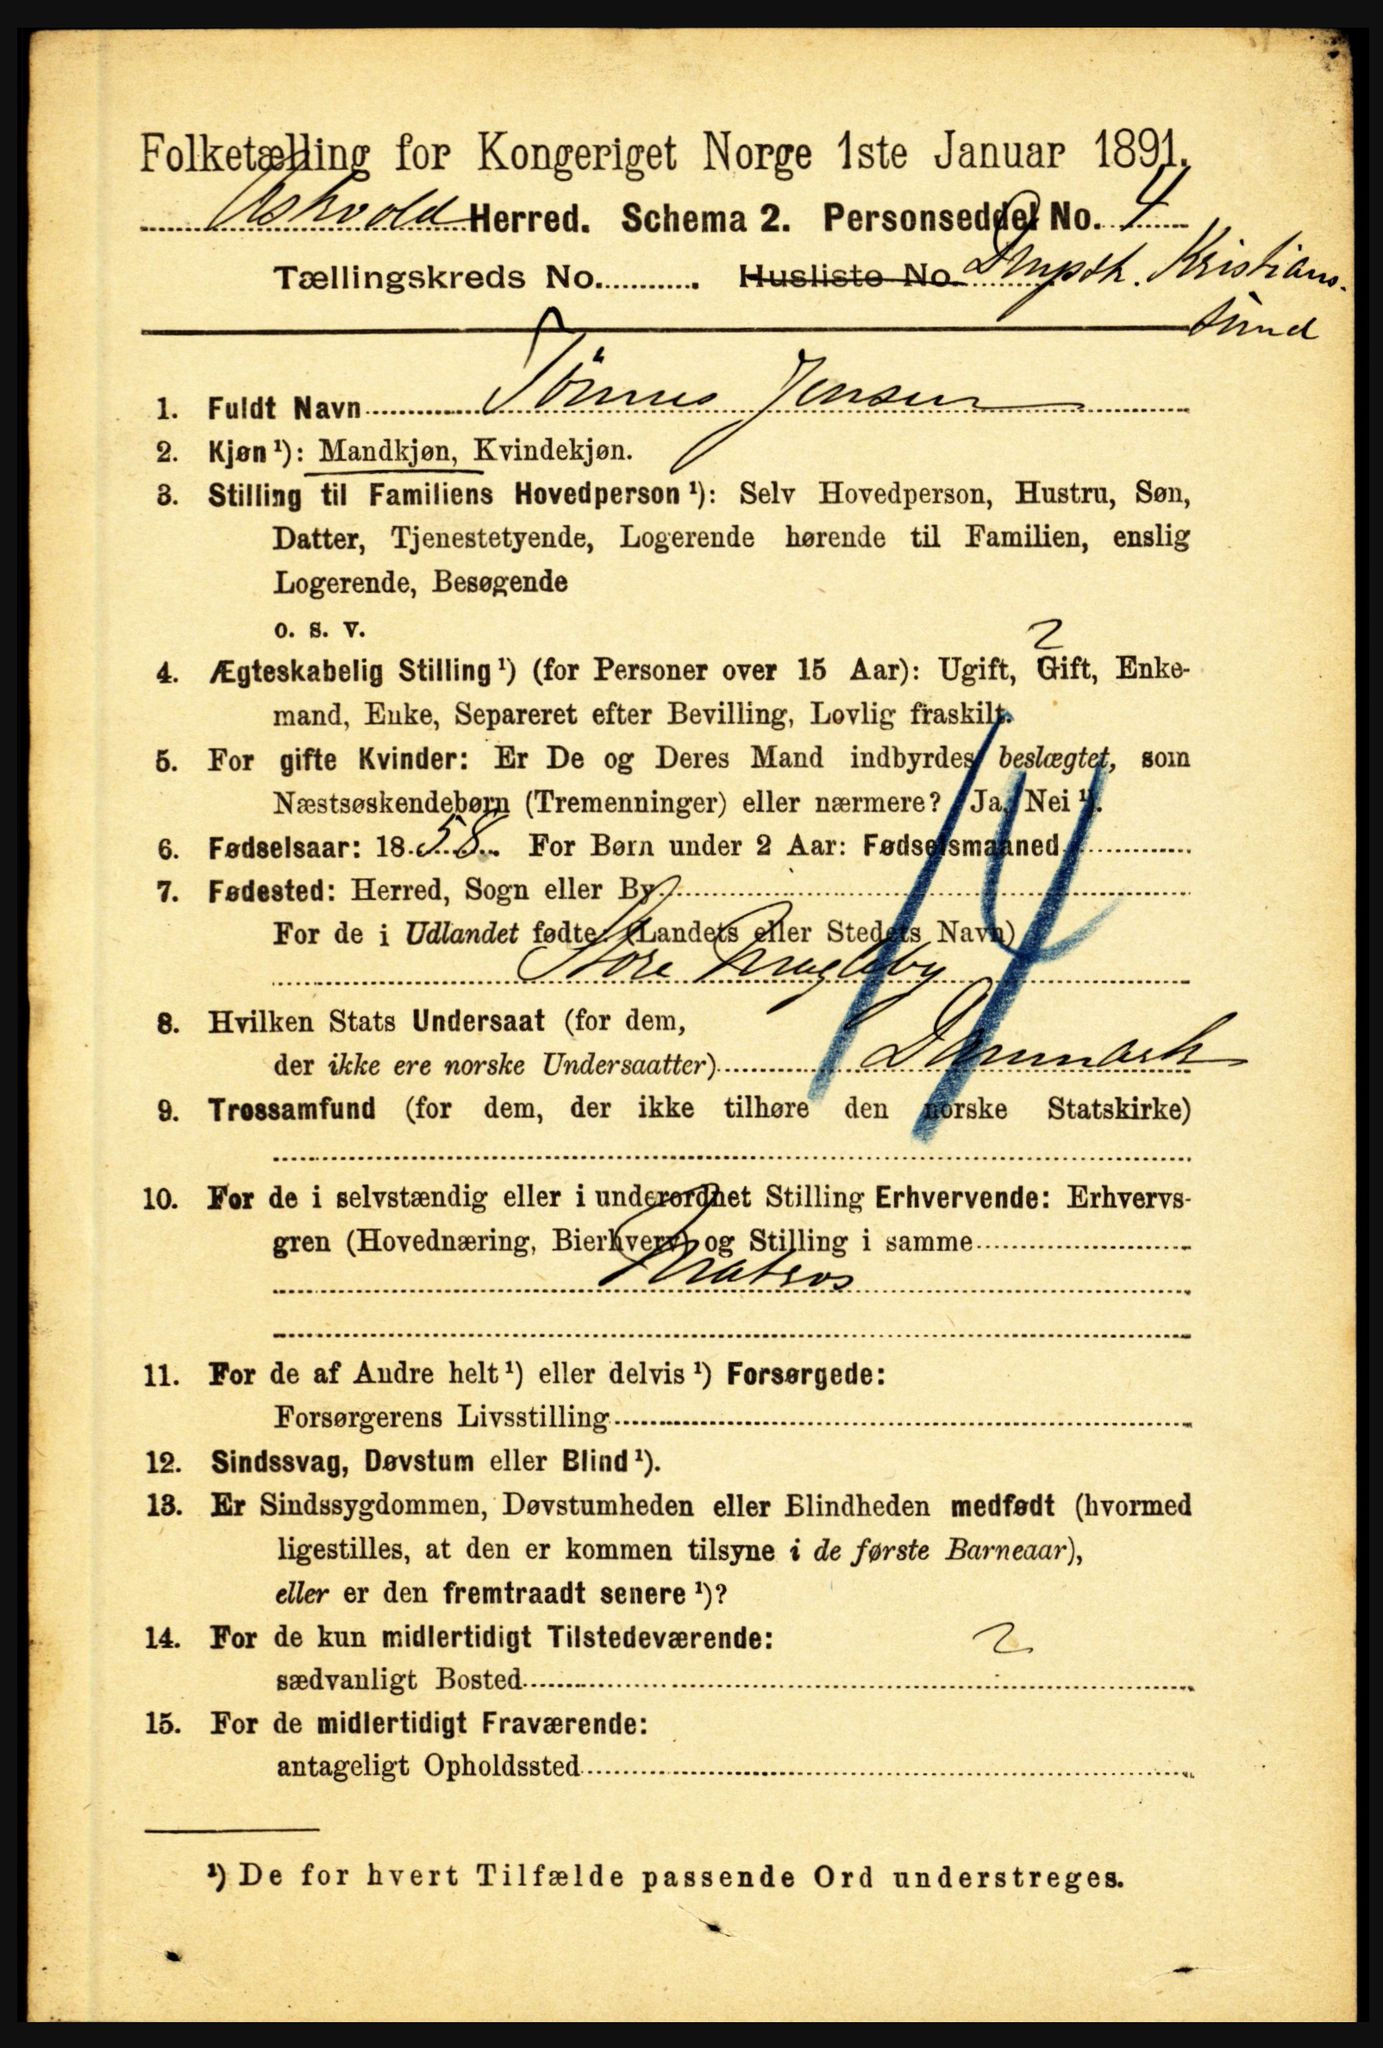 Folketælling for Kongeriget Norge 1ste Januar 1891.
Askvold Herred. Schema 2. Personseddel No. 4
Tællingskreds No. Husliste No. Dmpsk. Kristians-
sund
1. Fuldt Navn Tönnes Jensen
2. Kjøn ¹): Mandkjøn, Kvindekjøn.
3. Stilling til Familiens Hovedperson ¹): Selv Hovedperson, Hustru, Søn,
Datter, Tjenestetyende, Logerende hørende til Familien, enslig
Logerende, Besøgende
o. s. v.
2
4. Ægteskabelig Stilling ¹) (for Personer over 15 Aar): Ugift, Gift, Enke-
mand, Enke, Separeret efter Bevilling, Lovlig fraskilt.
5. For gifte Kvinder: Er De og Deres Mand indbyrdes beslægtet, som
Næstsøskendebørn (Tremenninger) eller nærmere? Ja, Nei ¹).
14
6. Fødselsaar: 1858. For Børn under 2 Aar: Fødselsmaaned
7. Fødested: Herred, Sogn eller By
For de i Udlandet fødte: (Landets eller Stedets Navn)
Store Magleby
8. Hvilken Stats Undersaat (for dem,
der ikke ere norske Undersaatter) Danmark
9. Trossamfund (for dem, der ikke tilhøre den norske Statskirke)
10. For de i selvstændig eller i underordnet Stilling Erhvervende: Erhvervs-
gren (Hovednæring, Bierhverv) og Stilling i samme
Matros
11. For de af Andre helt ¹) eller delvis ¹) Forsørgede:
Forsørgerens Livsstilling
12. Sindssvag, Døvstum eller Blind ¹).
13. Er Sindssygdommen, Døvstumheden eller Blindheden medfødt (hvormed
ligestilles, at den er kommen tilsyne i de første Barneaar),
eller er den fremtraadt senere ¹)?
14. For de kun midlertidigt Tilstedeværende:
2
sædvanligt Bosted
15. For de midlertidigt Fraværende:
antageligt Opholdssted
¹) De for hvert Tilfælde passende Ord understreges.